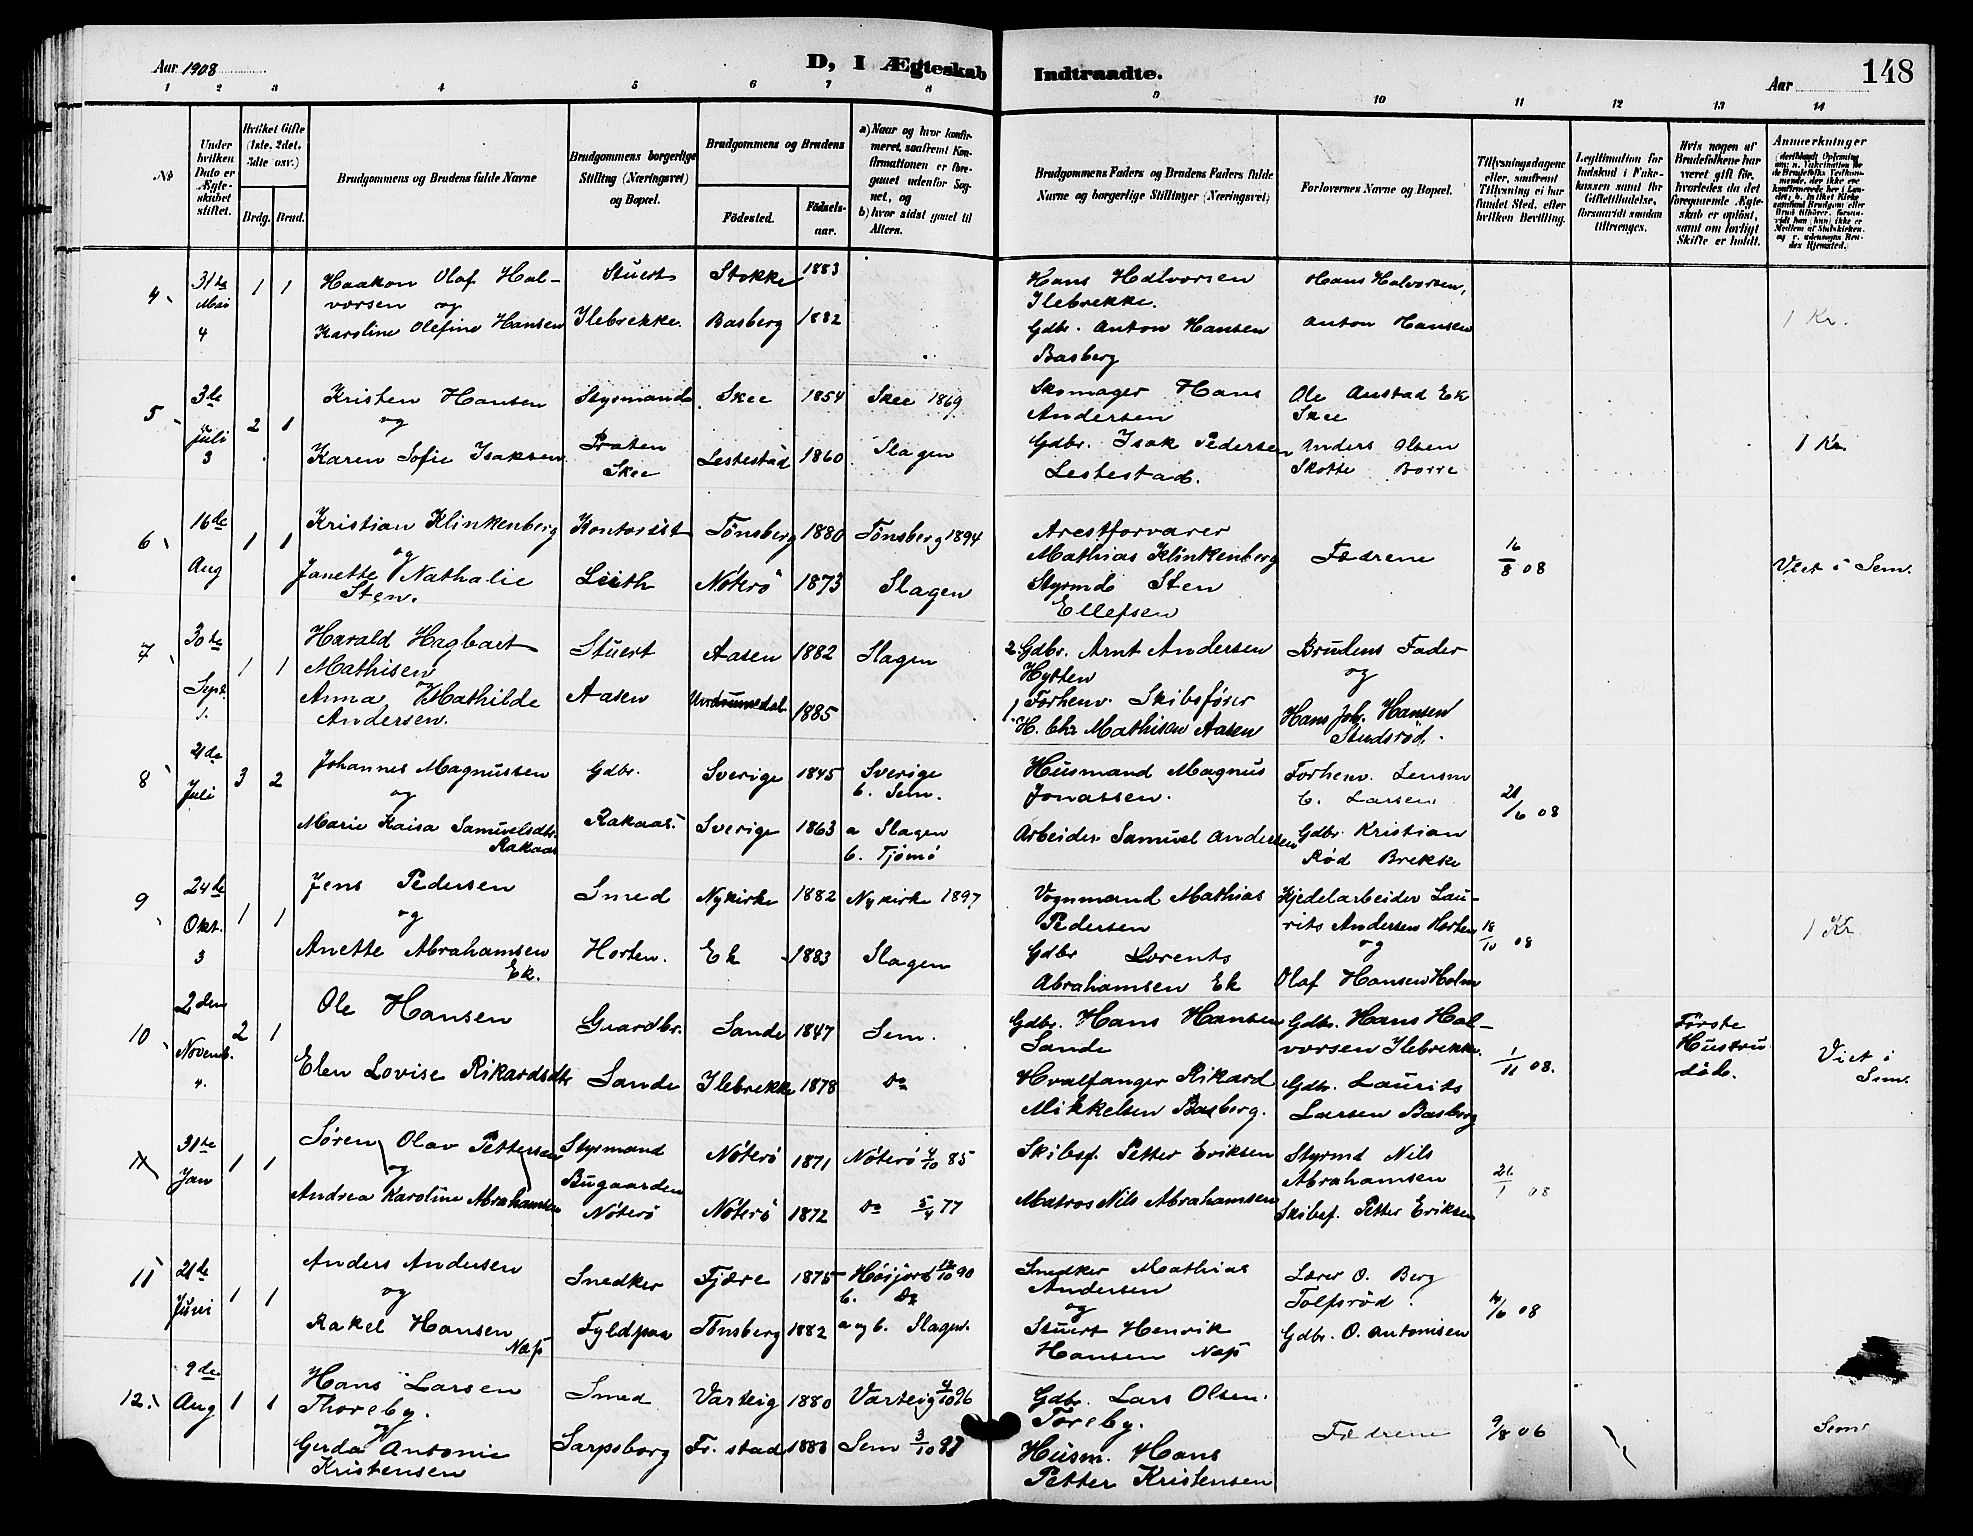 Aar 1908
D, I Ægteskab Indtraadte.
Aar
148
1 2 3 4 5 6 7 8 9 10 11 12 13 14
No
Under hvilken Dato er Ægteskabet stiftet.
Hvilket Gifte (1ste, 2det, 3die osv.)
Brdg. Brud.
Brudgommens og Brudens fulde Navne
Brudgommens borgerlige Stilling (Næringsvei) og Bopæl.
Brudgommens og Brudens
Födested.
Födsels-aar.
a) Naar og hvor konfirmeret, saafremt Konfirmationen er foregaaet udenfor Sognet, og
b) hvor sidst gaaet til Alters.
Brudgommens Faders og Brudens Faders fulde Navne og borgerlige Stillinger (Næringsvei)
Forlovernes Navne og Bopæl.
Tillysningsdagene eller, saafremt Tillysning ei har fundet Sted, efter hvilken Bevilling.
Legitimation for Indskud i Enkekassen samt for Giftetilladelse, forsaavidt saadan tiltrænges.
Hvis nogen af Brudefolkene har været gift för, hvorledes da det foregaaende Ægteskab er oplöst, samt om lovligt Skifte er holdt.
Anmærkninger
4 31te Mai 4 1 1
Haakon Olaf Hal-
vorsen og
Karoline Olefine Hansen
Stuert
Ilebrekke.
Stokke 1883
Basberg 1882
Hans Halvorsen
Ilebrekke.
Gdbr. Anton Hansen
Basberg
Hans Halvorsen,
Anton Hansen
1 Kr.
5 3de Juli 3 2 1
Kristen Hansen
og
Karen Sofie Isaksen
Styrmand
Skee
Skee 1854 Skee 1869
Lestestad 1860 Slagen
Skomager Hans
Andersen
Gdbr. Isak Pedersen
Lestestad.
Ole Austad Ek
Skee
Anders Olsen
Skotte Borre
1 Kr.
6 16de Aug 1 1
Kristian Klinkenberg
og
Janette Nathalie
Sten.
Kontorist
Leith
Tönsberg 1880 Tönsberg 1894
Nöterö 1873 Slagen
Arestforvarer
Mathias Klinkenberg
Styrmd Sten
Ellefsen
Fædrene
16/8 08
Viet i Sem.
7 30te Sept. 1. 1 1
Harald Hagbart
Mathisen
og
Anna Mathilde
Andersen.
Stuert
Aasen
Aasen 1882 Slagen
Undrumsdal 1885
2. Gdbr. Arnt Andersen
Hytten
1. Forhenv. Skibsförer
H. Chr Mathisen Aasen
Brudens Fader
og
Hans Joh. Hansen
Studsröd.
8 21de Juli 3 2
Johannes Magnussen
og
Marie Kaisa Samuelsdtr.
Rakaas
Gdbr.
Rakaas.
Sverige 1845 Sverige
b. Sem.
Sverige 1863 a Slagen
b. Tjömö
Husmand Magnus
Jonassen.
Arbeider Samuel Andersen
Forhenv. Lensm
C. Larsen
Gdbr Kristian
Röd Brekke
21/6 08
9 24de Okt. 3 1 1
Jens Pedersen
og
Anette Abrahamsen
Ek.
Smed
Horten.
Nykirke 1882 Nykirke 1897
Ek 1883 Slagen
Vognmand Mathias
Pedersen
Gdbr Lorents
Abrahamsen Ek
Kjedelarbeider Lau-
rits Andersen Horten
og
Olaf Hansen Holm
18/10 08
1 Kr
10 2den Novemb. 4. 2 1
Ole Hansen
Elen Lovise Rikardsdtr
Gaardbr.
Sande
Sande 1847 Sem.
Ilebrekke 1878 Do
Gdbr. Hans Hansen
Sande
Hvalfanger Rikard
Mikkelsen Basberg.
Gdbr. Hans Hal-
vorsen Ilebrekke.
Gdbr. Laurits
Larsen Basberg
1/11 08.
Förste
Hustru
död.
Viet i
Sem.
11 31te Jan 1 1
Sören Olav Pettersen
og
Andrea Karoline Abrahamsen
Styrmand
Bugaarden
Nöterö
Nöterö 1871 Nöterö 4/10 85
Nöterö 1872 Do 5/4 77
Skibsf. Petter Eriksen
Matros Nils Abrahamsen
Styrmd Nils
Abrahamsen
Skibsf. Petter Eriksen
21/1 08
11 21de Juni 1 1
Anders Andersen
og
Rakel Hansen
Næs
Snedker
Fyldpaa
Fjære 1875 Höijord 12/10 90
b. Do
Tönsberg 1882 a og b. Slagen.
Snedker Mathias
Andersen
og
Stuert Henrik
Hansen Næs
Lærer O. Berg
Tolfsröd.
Gdbr. O. Antonisen
/6 08
12. 9de Aug 1 1
Hans Larsen
Thoreby.
og
Gerda Antonie
Kristensen
Smed
Sarpsborg
Varteig 1880 Varteig 4/10 96
Fr. stad 1883 Sem 3/10 97
Gdbr. Lars Olsen.
Toreby.
Husm. Hans
Petter Kristensen
Fædrene
9/8 06
Sem